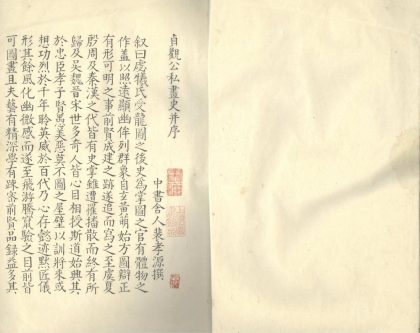 貞觀公私畫史并序
中書舍人裴孝源撰
叙曰虙犧氏受龍圖之後史為掌圖之官有體物之
作蓋以照遠顯幽侔列群象自玄黃萌始方圓辯正
有形可明之事前賢成建之跡遂追而寫之至虞夏
殷周及秦漢之代皆有史掌雖遭罹播散而終有所
歸及吳魏晉宋世多奇人皆心目相授斯道始興其
於忠臣孝子賢愚美惡莫不圖之屋壁以訓將來或
想功烈於千年聆英威於百代乃心存懿迹默匠儀
形其餘風化幽微感而遂至飛游騰竄驗之目前皆
可圖畫且夫藝有精深學有疎密前賢品錄益多其